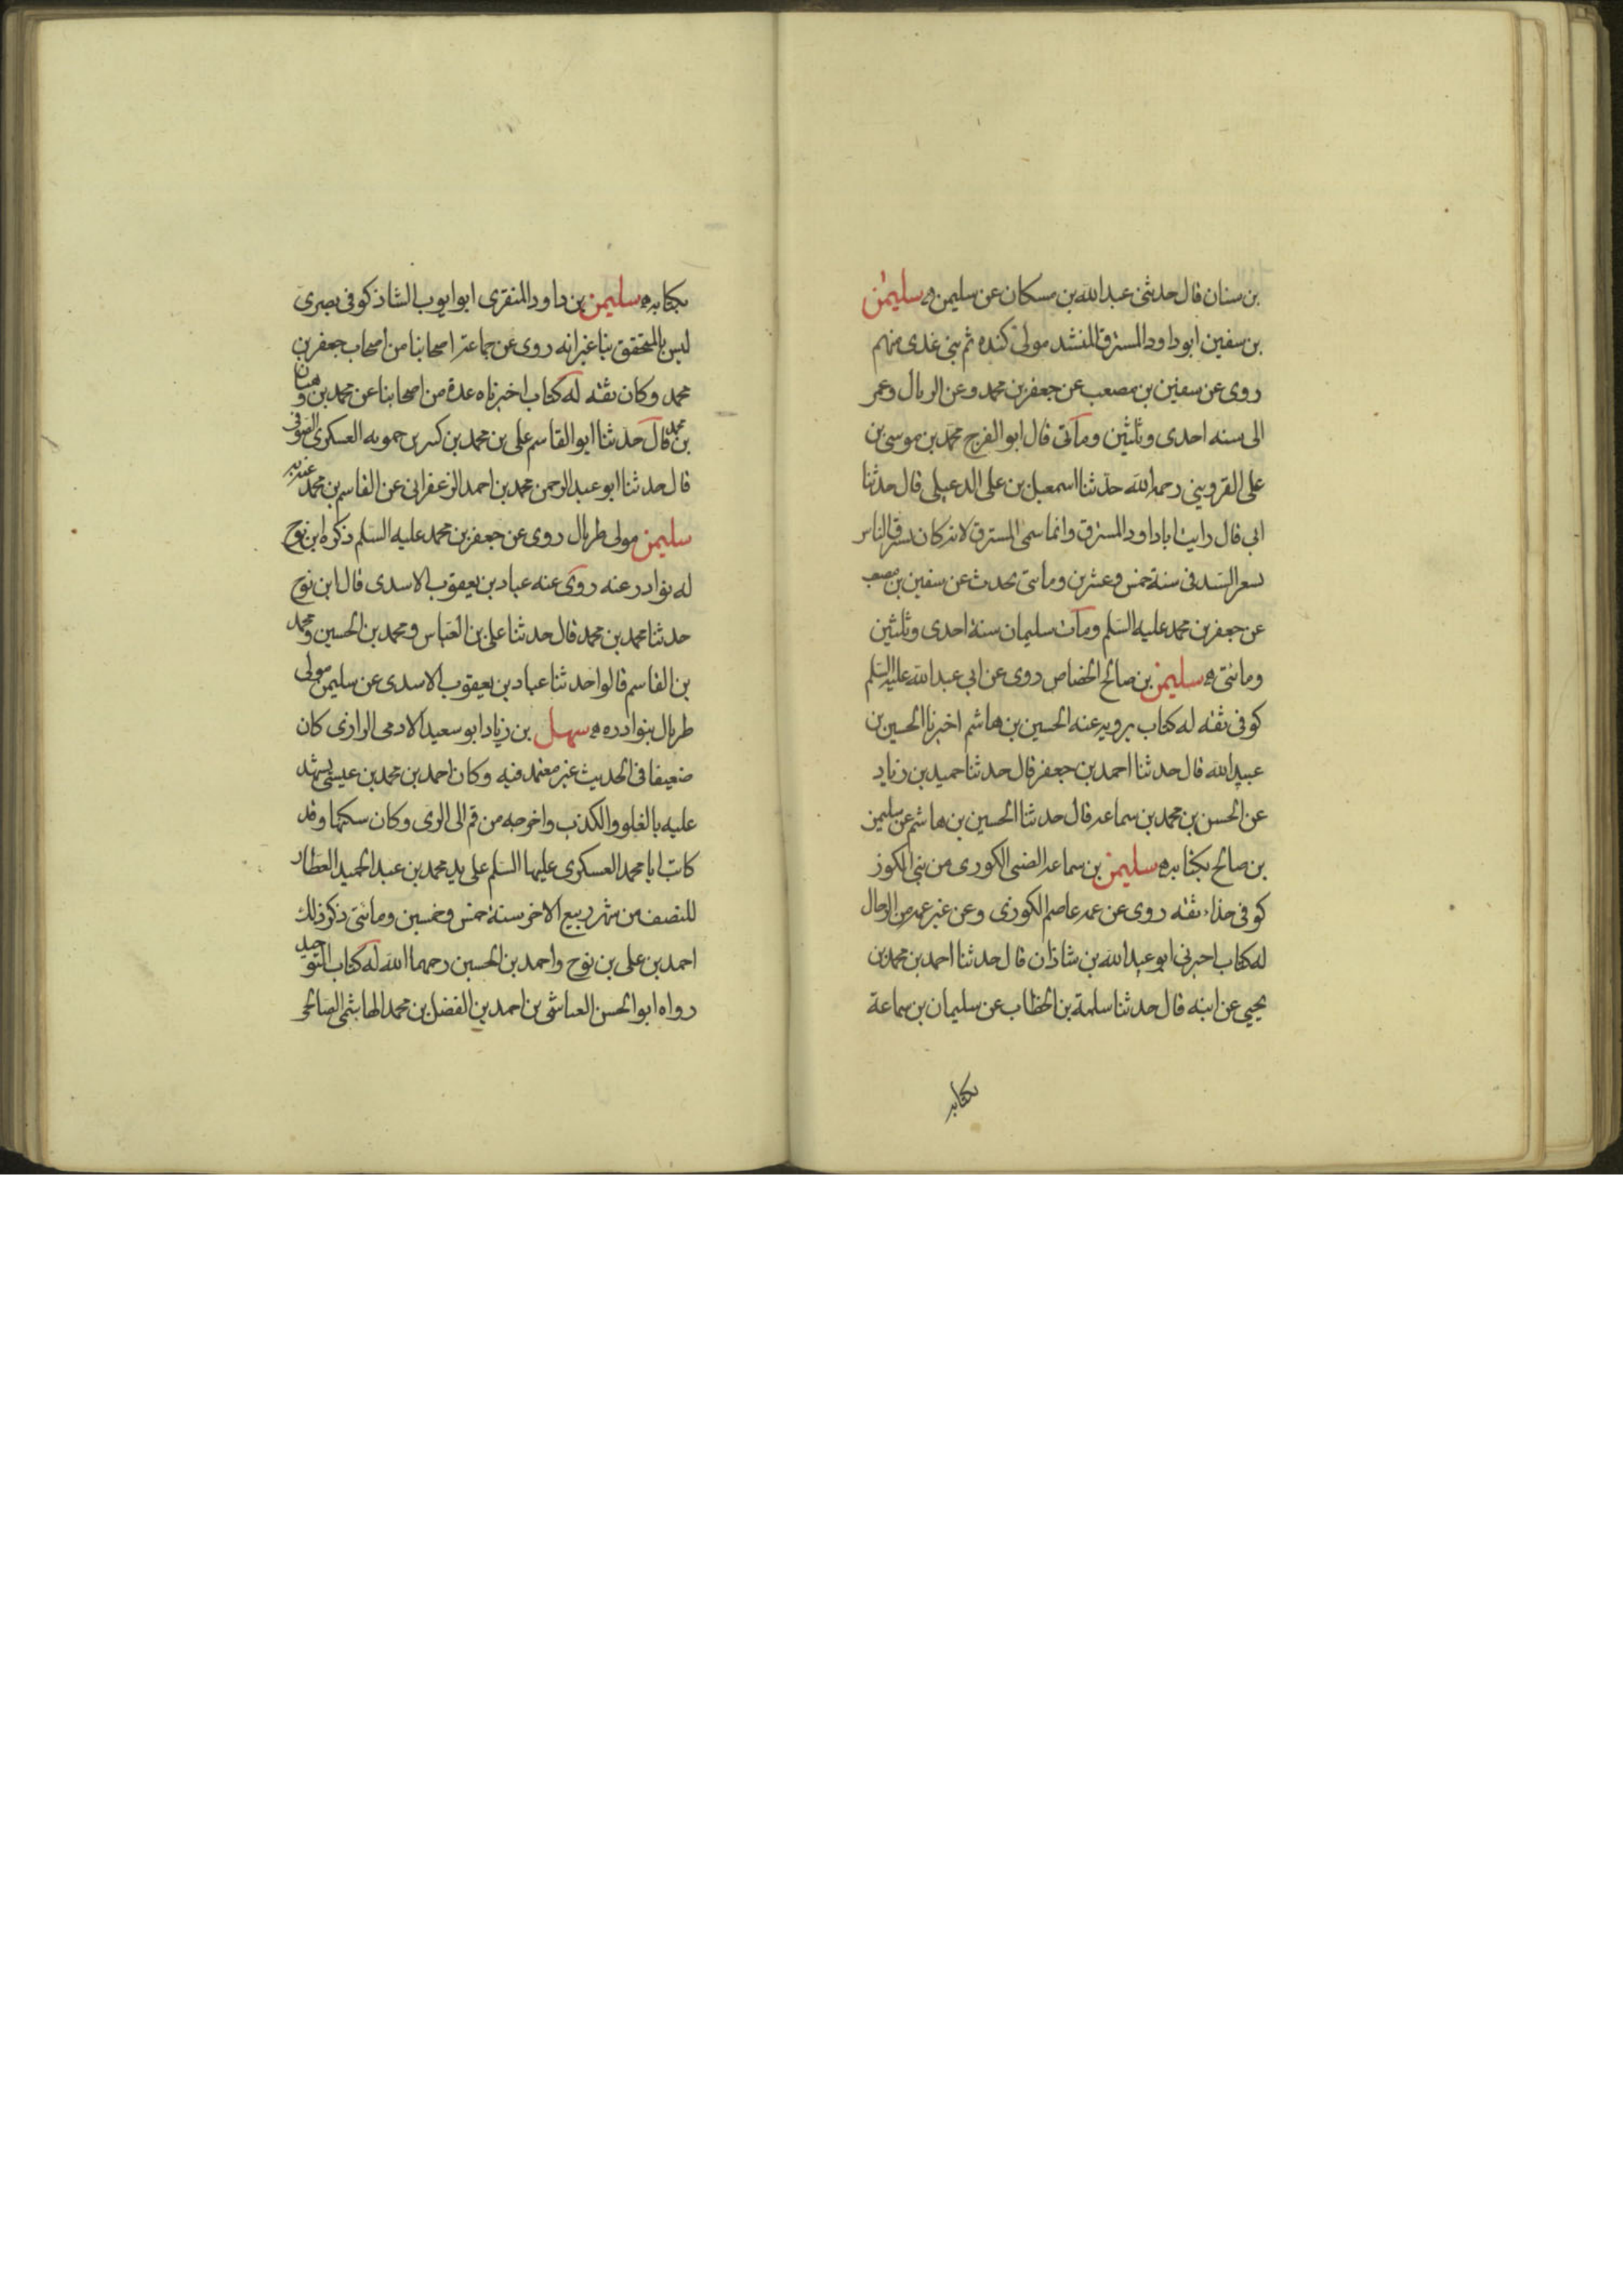 بن سنان قال حدثنی عبدالله بن مسکان عن سلیمن سلیمن
بن سفین ابو داود المسترق المنشد مولی کنده ثم بنی عدی منهم
روی عن سفین بن مصعب عن جعفر بن محمد وعن الربال وعمر
الی سنه احدی وثلثین ومأتی قال ابو الفرج محمد بن موسی بن
علی القزوینی رحمه الله حدثنا اسمعیل بن علی الدعبلی قال حدثنا
ابی قال رایت ابا داود المسترق وانما سمی المسترق لانه کان یسترق الناس
بشعر السید فی سنة خمس وعشرین وماتی یحدث عن سفین بن مصعب
عن جعفر بن محمد علیه السلم ومات سلیمان سنة احدی وثلثین
ومائتی سلیمن بن صالح الجصاص روی عن ابی عبدالله علیه السلم
کوفی ثقه له کتاب یرویه عنه الحسین بن هاشم اخبرنا الحسین بن
عبیدالله قال حدثنا احمد بن جعفر قال حدثنا حمید بن زیاد
عن الحسن بن محمد بن سماعه قال حدثنا الحسین بن هاشم عن سلیمن
بن صالح بکتابه سلیمن بن سماعه الضبی الکوزی من بنی الکوز
کوفی حذاء ثقه روی عن عمه عاصم الکوزی وعن غیر عمه من الرجال
له کتاب اخبرنی ابو عبدالله بن شاذان قال حدثنا احمد بن محمد بن
یحیی عن ابیه قال حدثنا سلمة بن الخطاب عن سلیمان بن سماعة
بکتابه
بکتابه سلیمن بن داود المنقری ابو ایوب الشاذکوفی بصری
لیس بالمتحقق بنا غیر انه روی عن جماعة اصحابنا من اصحاب جعفر بن
محمد وکان ثقه له کتاب اخبرناه عدة من اصحابنا عن محمد بن وهبان
بن محمد قال حدثنا ابو القاسم علی بن محمد بن کسر بن حمویه العسکری الصوفی
قال حدثنا ابو عبد الرحمن محمد بن احمد الزعفرانی عن القاسم بن محمد عنه به
سلیمن مولی طربال روی عن جعفر بن محمد علیه السلم ذکره ابن نوح
له نوادر عنه روی عنه عباد بن یعقوب الاسدی قال ابن نوح
حدثنا محمد بن محمد قال حدثنا علی بن العباس ومحمد بن الحسین ومحمد
بن القاسم قالوا حدثنا عباد بن یعقوب الاسدی عن سلیمن مولی
طربال بنوادره سهل بن زیاد ابو سعید الادمی الرازی کان
ضعیفا فی الحدیث غیر معتمد فیه وکان احمد بن محمد بن عیسی یشهد
علیه بالغلو والکذب واخرجه من قم الی الری وکان سکنها وقد
کاتب ابا محمد العسکری علیهما السلم علی ید محمد بن عبد الحمید العطار
للنصف من شهر ربیع الاخر سنة خمس وخمسین ومائتی ذکر ذلک
احمد بن علی بن نوح واحمد بن الحسین رحمهما الله له کتاب التوحید
رواه ابو الحسن العباشی بن احمد بن الفضل بن محمد الهاشمی الصالحی